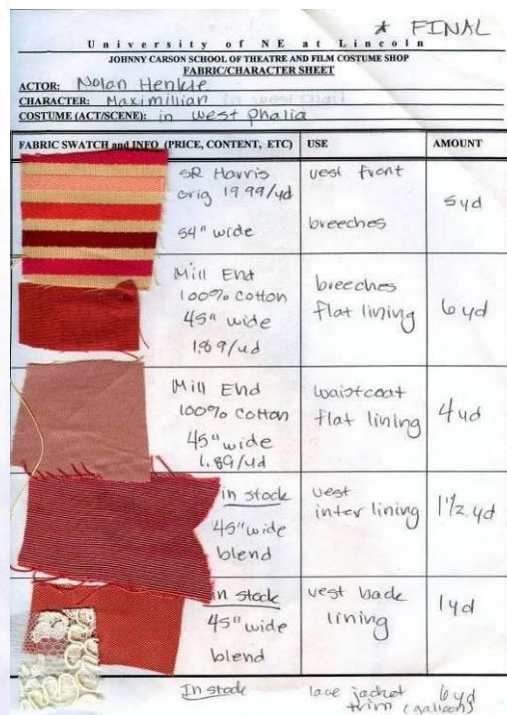 * FINAL
University of NE at Lincoln
JOHNNY CARSON SCHOOL OF THEATRE AND FILM COSTUME SHOP
FABRIC/CHARACTER SHEET
ACTOR: Nolan Henkle
CHARACTER: Maximillian
COSTUME (ACT/SCENE): in West phalia
FABRIC SWATCH and INFO (PRICE, CONTENT, ETC) USE AMOUNT
SR Harris
orig 19.99/yd
54" wide
vest front
breeches
5 yd
Mill End
100% cotton
45" wide
1.89/yd
breeches
flat lining
6 yd
Mill End
100% cotton
45" wide
1.89/yd
waistcoat
flat lining
4 yd
in stock
45" wide
blend
vest
inter lining
1 1/2 yd
in stock
45" wide
blend
vest back
lining
1 yd
In stock
lace jacket
trim (galloon)
6 yd